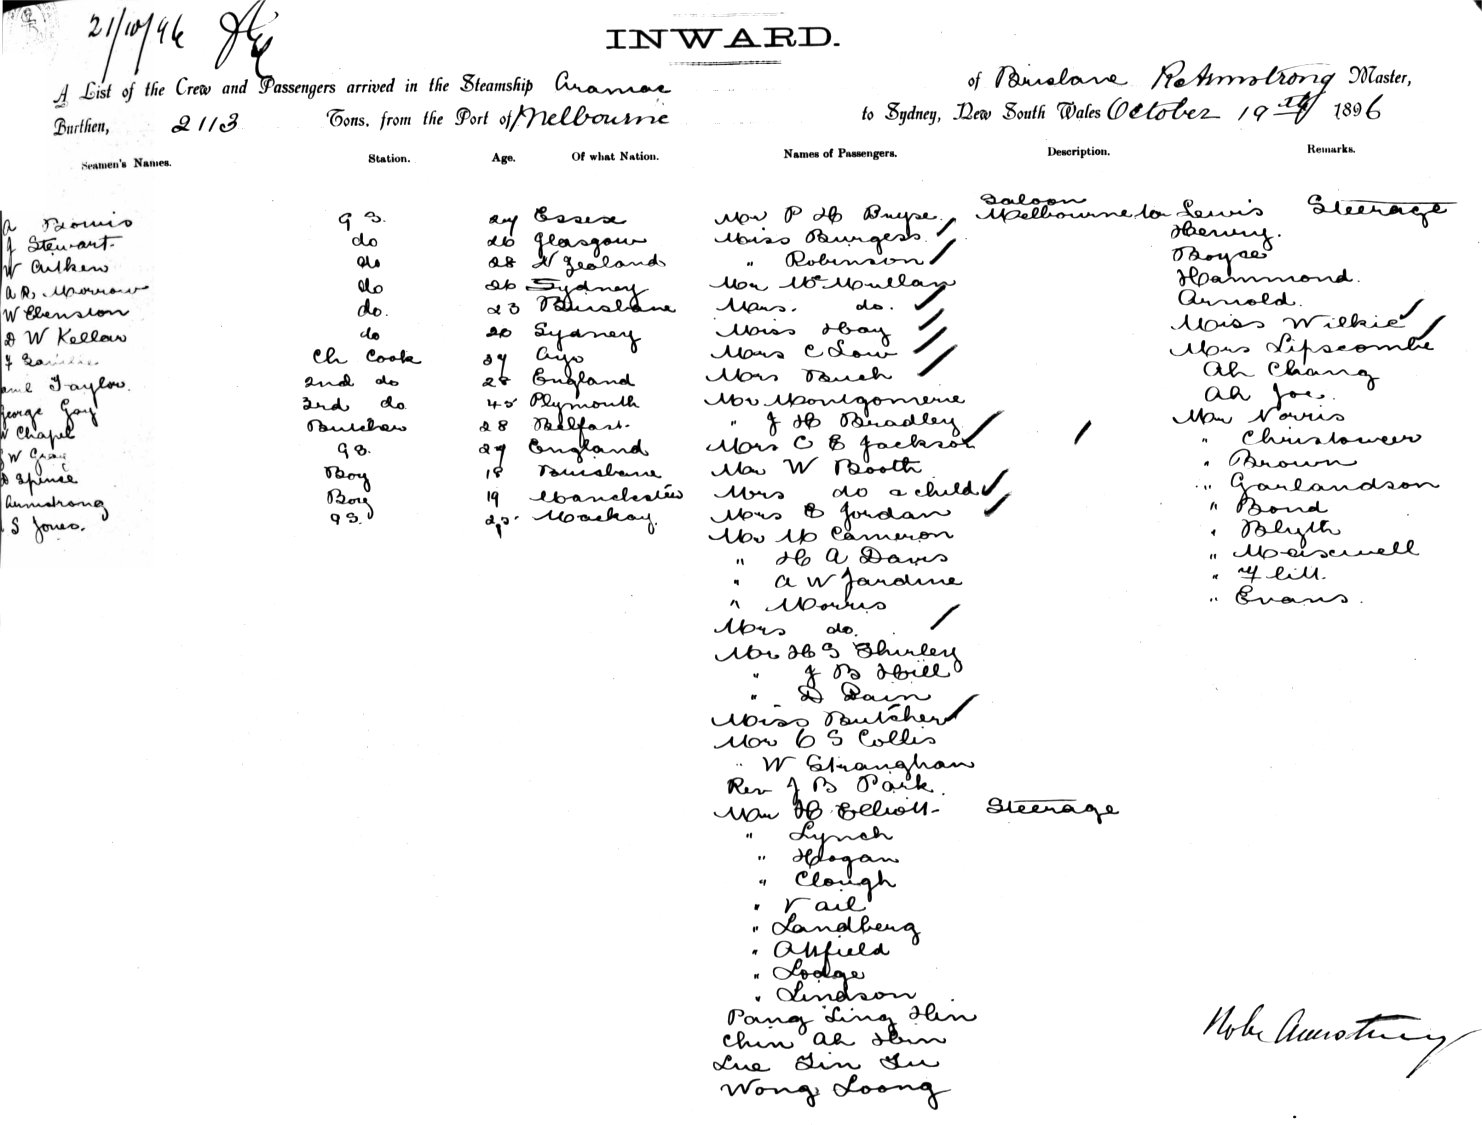 21/10/96
INWARD.
A List of the Crew and Passengers arrived in the Steamship Aramac of Brisbane R Armstrong Master,
Burthen, 2113 Tons, from the Port of Melbourne to Sydney, New South Wales October 19th 1896
Seamen's Names. Station. Age. Of what Nation. Names of Passengers. Description. Remarks.
Saloon
A GS. 27 Essex Mr P H Bryse Melbourne to Lewis Steerage
J Stewart do 26 Glasgow Miss Burgess Henry.
W Aitken do 28 N Zealand " Robinson Boyse
A R. Morrow do 26 Sydney Mr McMullan Hammond.
W Ebenston do. 23 Brisbane Mrs. do. Arnold.
D W Kellow do 20 Sydney Miss Hay Miss Wilkie
J Ch Cook 37 Ayr Mrs C Low Mrs Lipscombe
Taylor. 2nd do 28 England Mrs Buch Ah Chang
George Gay 3rd do 45 Plymouth Mr Montgomerie Ah Joe.
W Chapel Butcher 28 Belfast. " J H Bradley Mr Norris
W Gray GS. 27 England Mrs C E Jackson " Christower
D Spence Boy 18 Brisbane Mr W Booth " Brown
Armstrong Boy 19 Manchester Mrs do & child " Garlandson
S Jones. GS. Mackay. Mrs E Jordan " Bond
Mr M Cameron " Blyth
" H A Davis " Meiscwell
" A W Jardine " Hill.
" Morris " Evans.
Mrs do.
Mr H S Shirley
" J B Hill
" D Dain
Miss Butcher
Mr C S Collis
" W Stranghan
Rev J B Park.
Mr H Elliott Steerage
" Lynch
" Hogan
" Clough
" Vail
" Landberg
" Attfield
" Lodge
" Lindson
Pang Ling Hin
Chin Ah Hin
Lue Tin Fu
Wong Loong
Robt Armstrong